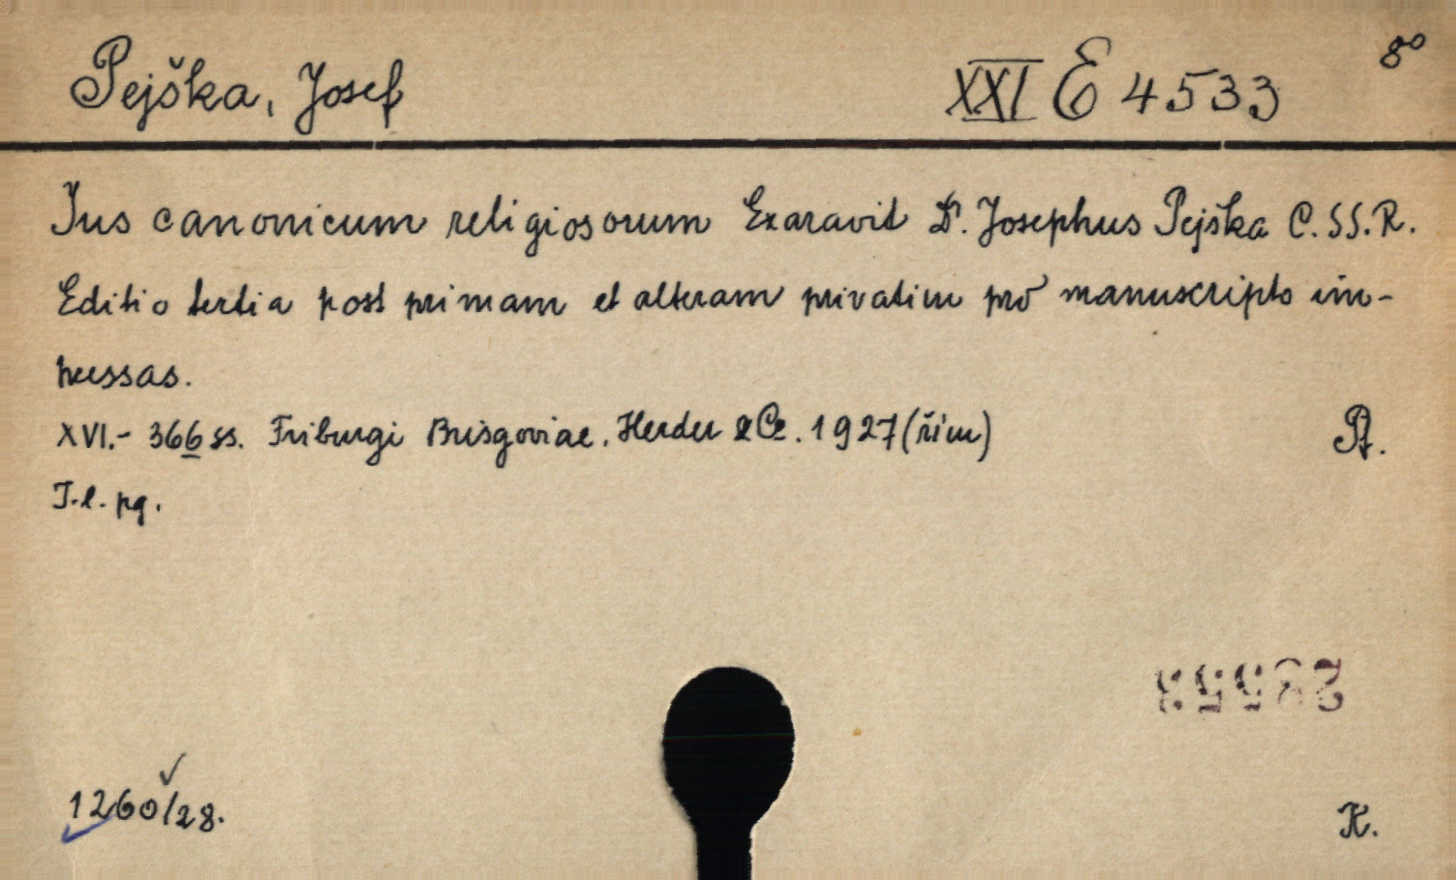 Pejška, Josef XXI E 4533 8°
Jus canonicum religiosorum Exaravit Dr. Josephus Pejška C.SS.R.
Editio tertia post primam et alteram privatim pro manuscripto im-
pressas.
XVI.- 366 ss. Friburgi Brisgoviae. Herder & Co. 1927 (řím)
Pt.
T.l. pg.
1260/28.
K.